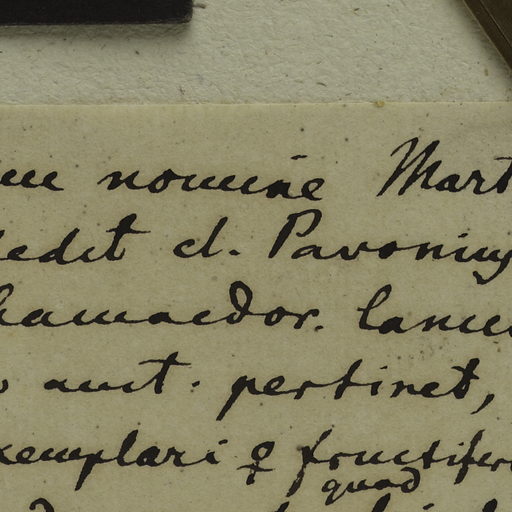 nomine Mart
dedit cl. Pavonius
Chamaedor. lance
aut. pertinet,
exemplari ♀ fructifer
quod